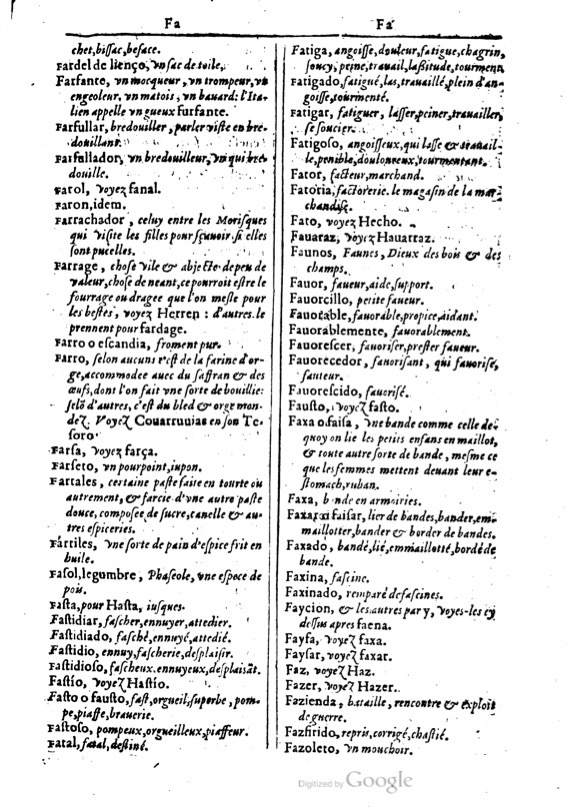 Fa
chet, bissac, besace.
Fardel de lienço, vn sac de toile,
Farfante, vn mocqueur, vn trompeur, vn
engeoleur, vn matois, vn bauard: l'Ita-
lien appelle vn gueux furfante.
Farfullar, bredouiller, parler viste en bre-
doüillant.
Farfullador, vn bredouilleur, vn qui bre-
douille.
Farol, voyez fanal.
Faron, idem.
Farrachador, celuy entre les Morisques
qui visite les filles pour sçauoir si elles
sont pucelles.
Farrage, chose vile & abjecte de peu de
valeur, chose de neant, ce pourroit estre le
fourrage ou dragee que l'on mesle pour
les bestes, voyez Herren: d'autres le
prennent pour fardage.
Farro o escandia, froment pur.
Farro, selon aucuns c'est de la farine d'or-
ge, accommodee auec du saffran & des
œufs, dont l'on fait vne sorte de bouillie:
selõ d'autres, c'est du bled & orge mon-
dez. Voyez Couarruuias en son Te-
soro
Farsa, voyez farça.
Farseto, vn pourpoint, iupon.
Fartales, certaine paste faite en tourte ou
autrement, & farcie d'vne autre paste
douce, composee de sucre, canelle & au-
tres espiceries.
Fartiles, vne sorte de pain d'espice frit en
huile.
Fasol, legumbre, Phaseole, vne espece de
pois.
Fasta, pour Hasta, iusques.
Fastidiar, fascher, ennuyer, attedier.
Fastidiado, fasché, ennuyé, attedié.
Fastidio, ennuy, fascherie, desplaisir.
Fastidioso, fascheux, ennuyeux, desplaisãt.
Fastío, voyez Hastío.
Fasto o fausto, fast, orgueil, superbe, pom-
pe, piaffe, brauerie.
Fastoso, pompeux, orgueilleux, piaffeur.
Fatal, fatal, destiné.
Fa
Fatiga, angoisse, douleur, fatigue, chagrin,
soucy, peine, trauail, lassitude, tourment.
Fatigado, fatigué, las, trauaillé, plein d'an-
goisse, tourmenté.
Fatigar, fatiguer, lasser, peiner, trauailler,
se soucier.
Fatigoso, angoisseux, qui lasse & trauail-
le, penible, douloureux, tourmentant.
Fator, facteur, marchand.
Fatoria, factorerie. le magasin de la mar-
chandise.
Fato, voyez Hecho.
Fauaraz, voyez Hauarraz.
Faunos, Faunes, Dieux des bois & des
champs.
Fauor, faueur, aide, support.
Fauorcillo, petite faueur.
Fauorable, fauorable, propice, aidant.
Fauorablemente, fauorablement.
Fauorescer, fauoriser, prester faueur.
Fauorecedor, fauorisant, qui fauorise,
fauteur.
Fauorescido, fauorisé.
Fausto, voyez fasto.
Faxa o faisa, vne bande comme celle de-
quoy on lie les petits enfans en maillot,
& toute autre sorte de bande, mesme ce
que les femmes mettent deuant leur e-
stomach, ruban.
Faxa, bande en armoiries.
Faxar o faisar, lier de bandes, bander, em-
maillotter, bander & border de bandes.
Faxado, bandé, lié, emmaillotté, bordé de
bande.
Faxina, fascine.
Faxinado, remparé de fascines.
Faycion, & les autres par y, voyes-les cy
dessus apres faena.
Faysa, voyez faxa.
Faysar, voyez faxar.
Faz, voyez Haz.
Fazer, voyez Hazer.
Fazienda, bataille, rencontre & exploit
de guerre.
Fazfirido, repris, corrigé, chastié.
Fazoleto, vn mouchoir.
Digitized by Google